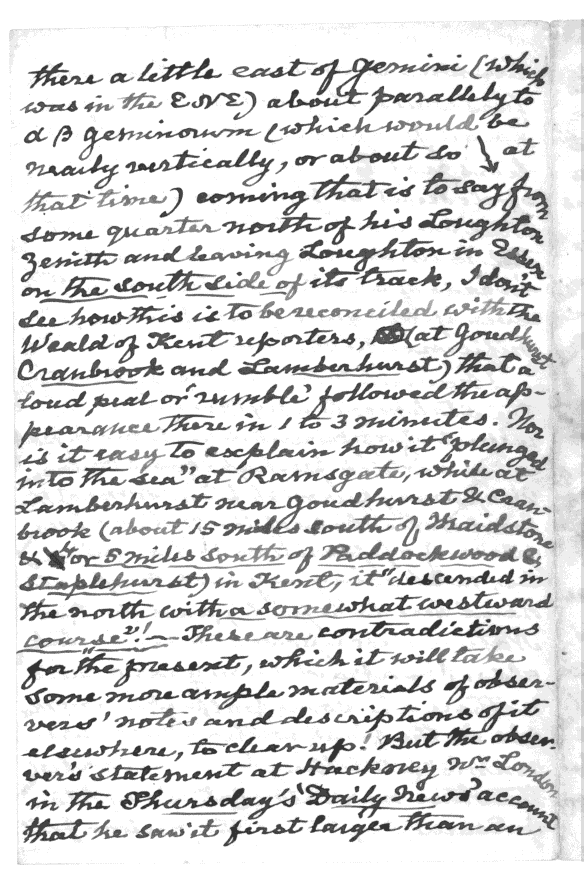 there a little east of Gemini (which
was in the ENE) about parallely to
α β Geminorum (which would be
nearly vertically, or about so at
that time) coming that is to say from
some quarter north of his Loughton
Zenith and leaving Loughton in Essex
on the south side of its track, I don't
see how this is to be reconciled with the
Weald of Kent reporters, (at Goudhurst
Cranbrook and Lamberhurst) that a
loud peal or 'rumble' followed the ap-
pearance there in 1 to 3 minutes. Nor
is it easy to explain how it "plunged
into the sea" at Ramsgate, while at
Lamberhurst near Goudhurst & Cran-
brook (about 15 miles south of Maidstone
& 4 or 5 miles south of Paddockwood &
Staplehurst) in Kent, it "descended in
the north with a somewhat westward
course"! — These are contradictions
for the present, which it will take
some more ample materials of obser-
vers' notes and descriptions of it
elsewhere, to clear up! But the obser-
ver's statement at Hackney Nr. London
in the Thursday's 'Daily News' account
that he saw it first larger than an